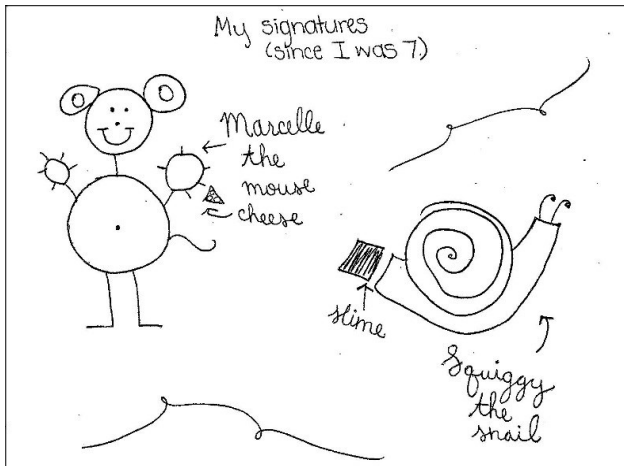 My signatures
(since I was 7.)
Marcelle
the
mouse
cheese
slime
Squiggy
the
snail